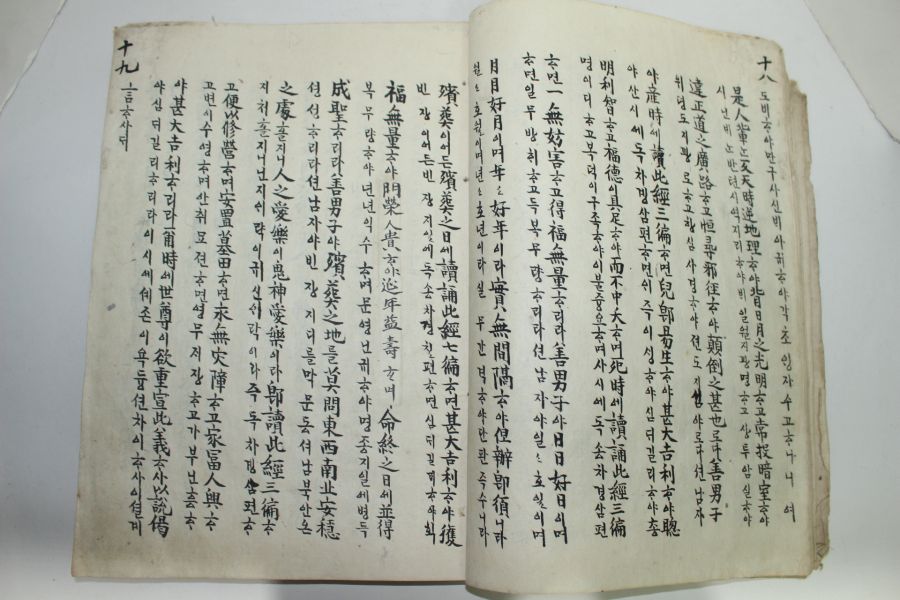 十八
도비ᄒᆞ야만구사신비아귀ᄒᆞ야각초인자수고ᄒᆞ나니여
是人輩는反天時逆地理ᄒᆞ야背日月之光明ᄒᆞ고常投暗室ᄒᆞ야
시인비는반턴시역지리ᄒᆞ야비일월지광명ᄒᆞ고상투암실ᄒᆞ야
違正道之廣路ᄒᆞ고恒尋邪徑ᄒᆞ야顚倒之甚也로다善男子
위뎡도지광로ᄒᆞ고항심사경ᄒᆞ야뎐도지심야로다션남자
야産時에讀此經三徧ᄒᆞ면兒卽易生ᄒᆞ야甚大吉利ᄒᆞ야聰
야산시에독차경삼편ᄒᆞ면이즉이싱ᄒᆞ야심ᄃᆡ길리ᄒᆞ야총
明利智ᄒᆞ고福德이具足ᄒᆞ야而不中夭ᄒᆞ며死時에讀誦此經三徧
명이디ᄒᆞ고복덕이구족ᄒᆞ야이불즁요ᄒᆞ며사시에독송차경삼편
ᄒᆞ면一無妨害ᄒᆞ고得福無量ᄒᆞ리라善男子야日日好日이며
ᄒᆞ면일무방희ᄒᆞ고득복무량ᄒᆞ리라션남자야일々호일이며
月月好月이며年々好年이라實無間隔ᄒᆞ야但辦卽須니라
월々호월이며년々호년이라실무간격ᄒᆞ야단판즉수니라
殯葬이어든殯葬之日에讀誦此經七徧ᄒᆞ면甚大吉利ᄒᆞ야獲
빈장이어든빈장지일에독송차경칠편ᄒᆞ면심ᄃᆡ길리ᄒᆞ야획
福無量ᄒᆞ야門榮人貴ᄒᆞ야延年益壽ᄒᆞ며命終之日에並得
복무량ᄒᆞ야문영인귀ᄒᆞ야연년익수ᄒᆞ며명종지일에병득
成聖ᄒᆞ리라善男子야殯葬之地를莫問東西南北安穩
셩셩ᄒᆞ리라션남자야빈장지디를막문동셔남북안온
之處흘지니人之愛樂이鬼神愛樂이라卽讀此經三徧ᄒᆞ
지처흘지니인지이락이귀신이락이라즉독차경삼편ᄒᆞ
고便以修營ᄒᆞ며安置墓田ᄒᆞ면永無灾障ᄒᆞ고家富人興ᄒᆞ
고변이수영ᄒᆞ며안취묘뎐ᄒᆞ면영무지장ᄒᆞ고가부인흥ᄒᆞ
야甚大吉利ᄒᆞ리라爾時에世尊이欲重宣此義ᄒᆞ사以說偈
야심ᄃᆡ길리ᄒᆞ리라이시에세존이욕듕션차의ᄒᆞ사이셜게
言ᄒᆞ사ᄃᆡ
十九